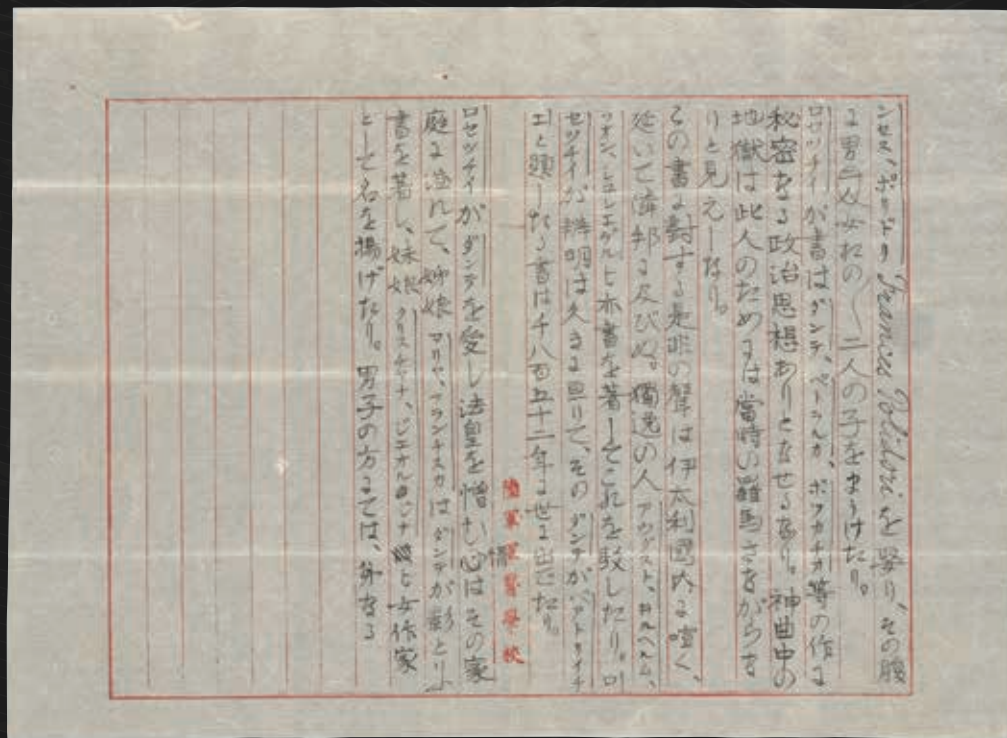 ンセス、ポリドリ Frances Polidori を娶り、その腹
に男二人女二人の子をまうけたり。
ロセツチイが書はダンテ、ペトラルカ、ボツカチヨ等の作に
秘密なる政治思想ありとなせるなり。神曲中の
地獄は此人のためには當時の羅馬さながらな
りと見えしなり。
この書に對する是非の聲は伊太利國内に喧く、
延いて隣邦に及びぬ。獨逸の人アウグスト、ヰルヘルム、
フオン、シユレエゲルも亦書を著してこれを駁したり。ロ
セツチイが辨明は久きに亘りて、そのダンテがベアトリイチ
エと題したる書は千八百五十二年に世に出でたり。
ロセツチイがダンテを愛し法皇を憎む心はその家
庭に溢れて、姉娘マリヤ、フランチスカはダンテが影といふ
書を著し、妹娘クリスチナ、ジエオルジナは女作家
として名を揚げたり。男子の方にては、弟なる
陸軍軍醫學校